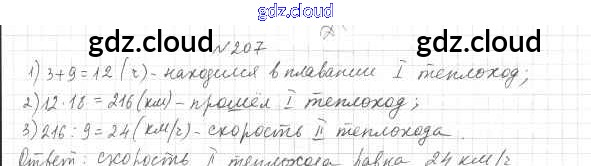 gdz.cloud
gdz.cloud gdz.cloud
№207
1) 3+9=12 (ч)-находился в плавании I теплоход;
2) 12·18=216 (км)-прошёл I теплоход;
3) 216:9=24 (км/ч)-скорость II теплохода.
Ответ: скорость II теплохода равна 24 км/ч